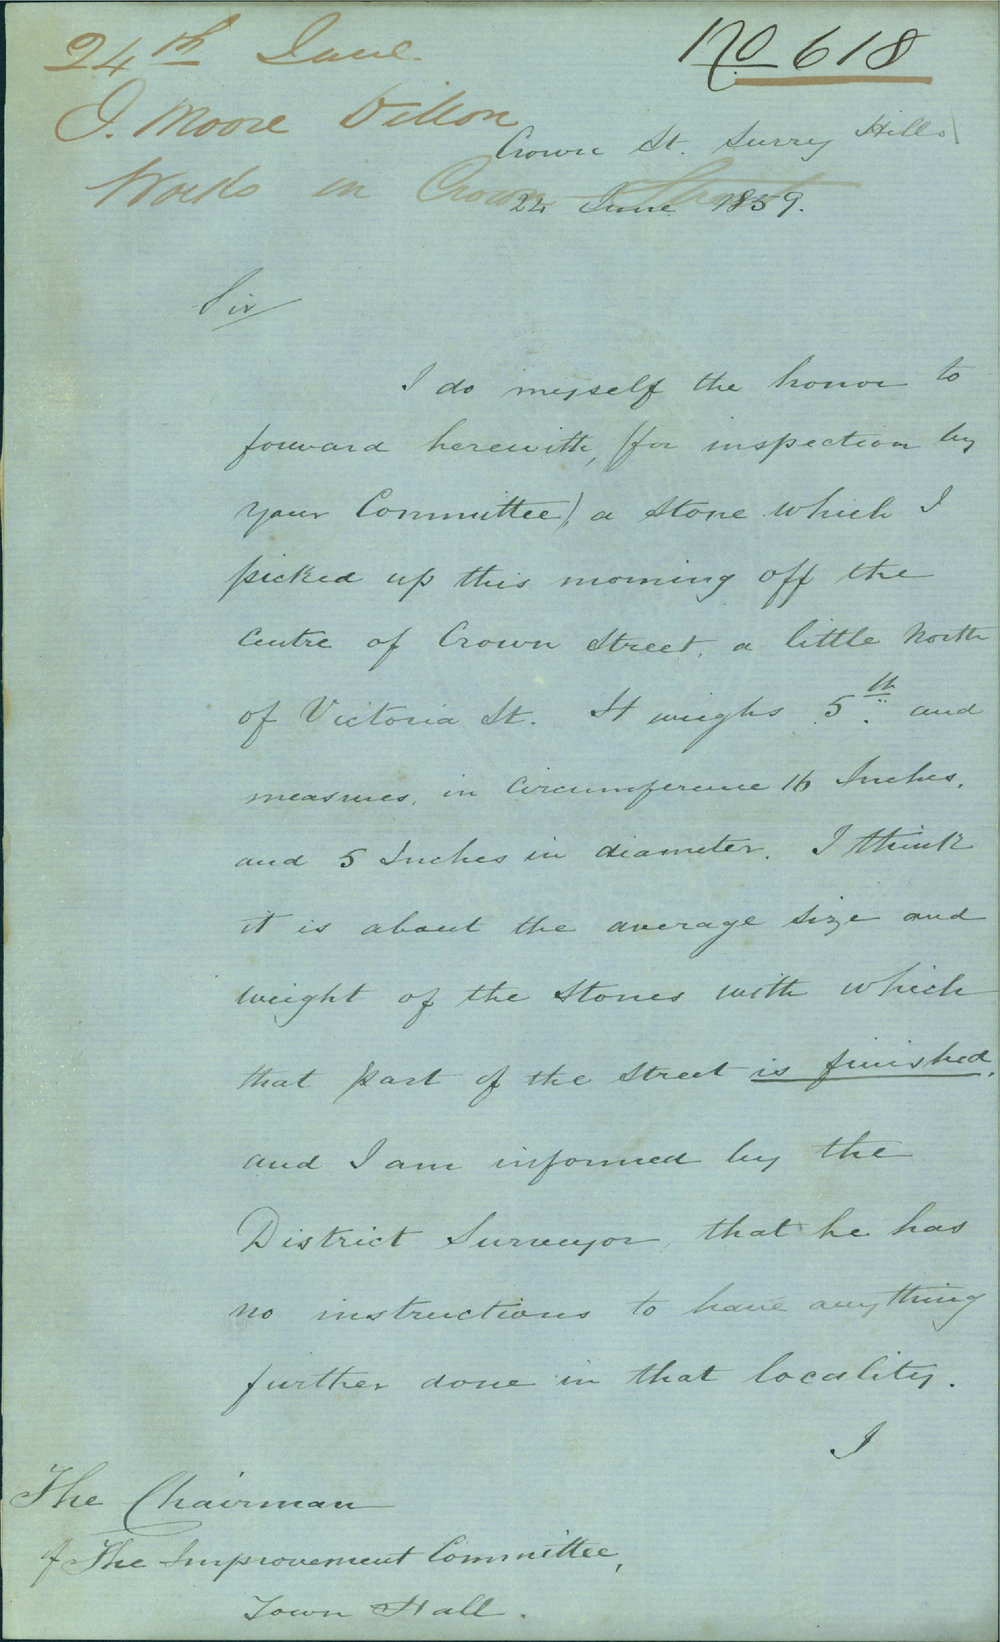 24th June
J. Moore Dillon
Works in Crown Street
No 618
Crown St. Surry Hills
24 June 1859.
Sir
I do myself the honor to
forward herewith, (for inspection by
your Committee), a Stone which I
picked up this morning off the
centre of Crown Street, a little North
of Victoria St. It weighs 5 lb and
measures, in circumference 16 Inches,
and 5 Inches in diameter. I think
it is about the average size and
weight of the Stones with which
that part of the Street is finished,
and I am informed by the
District Surveyor, that he has
no instructions to have anything
further done in that locality.
I
The Chairman
of The Improvement Committee,
Town Hall.